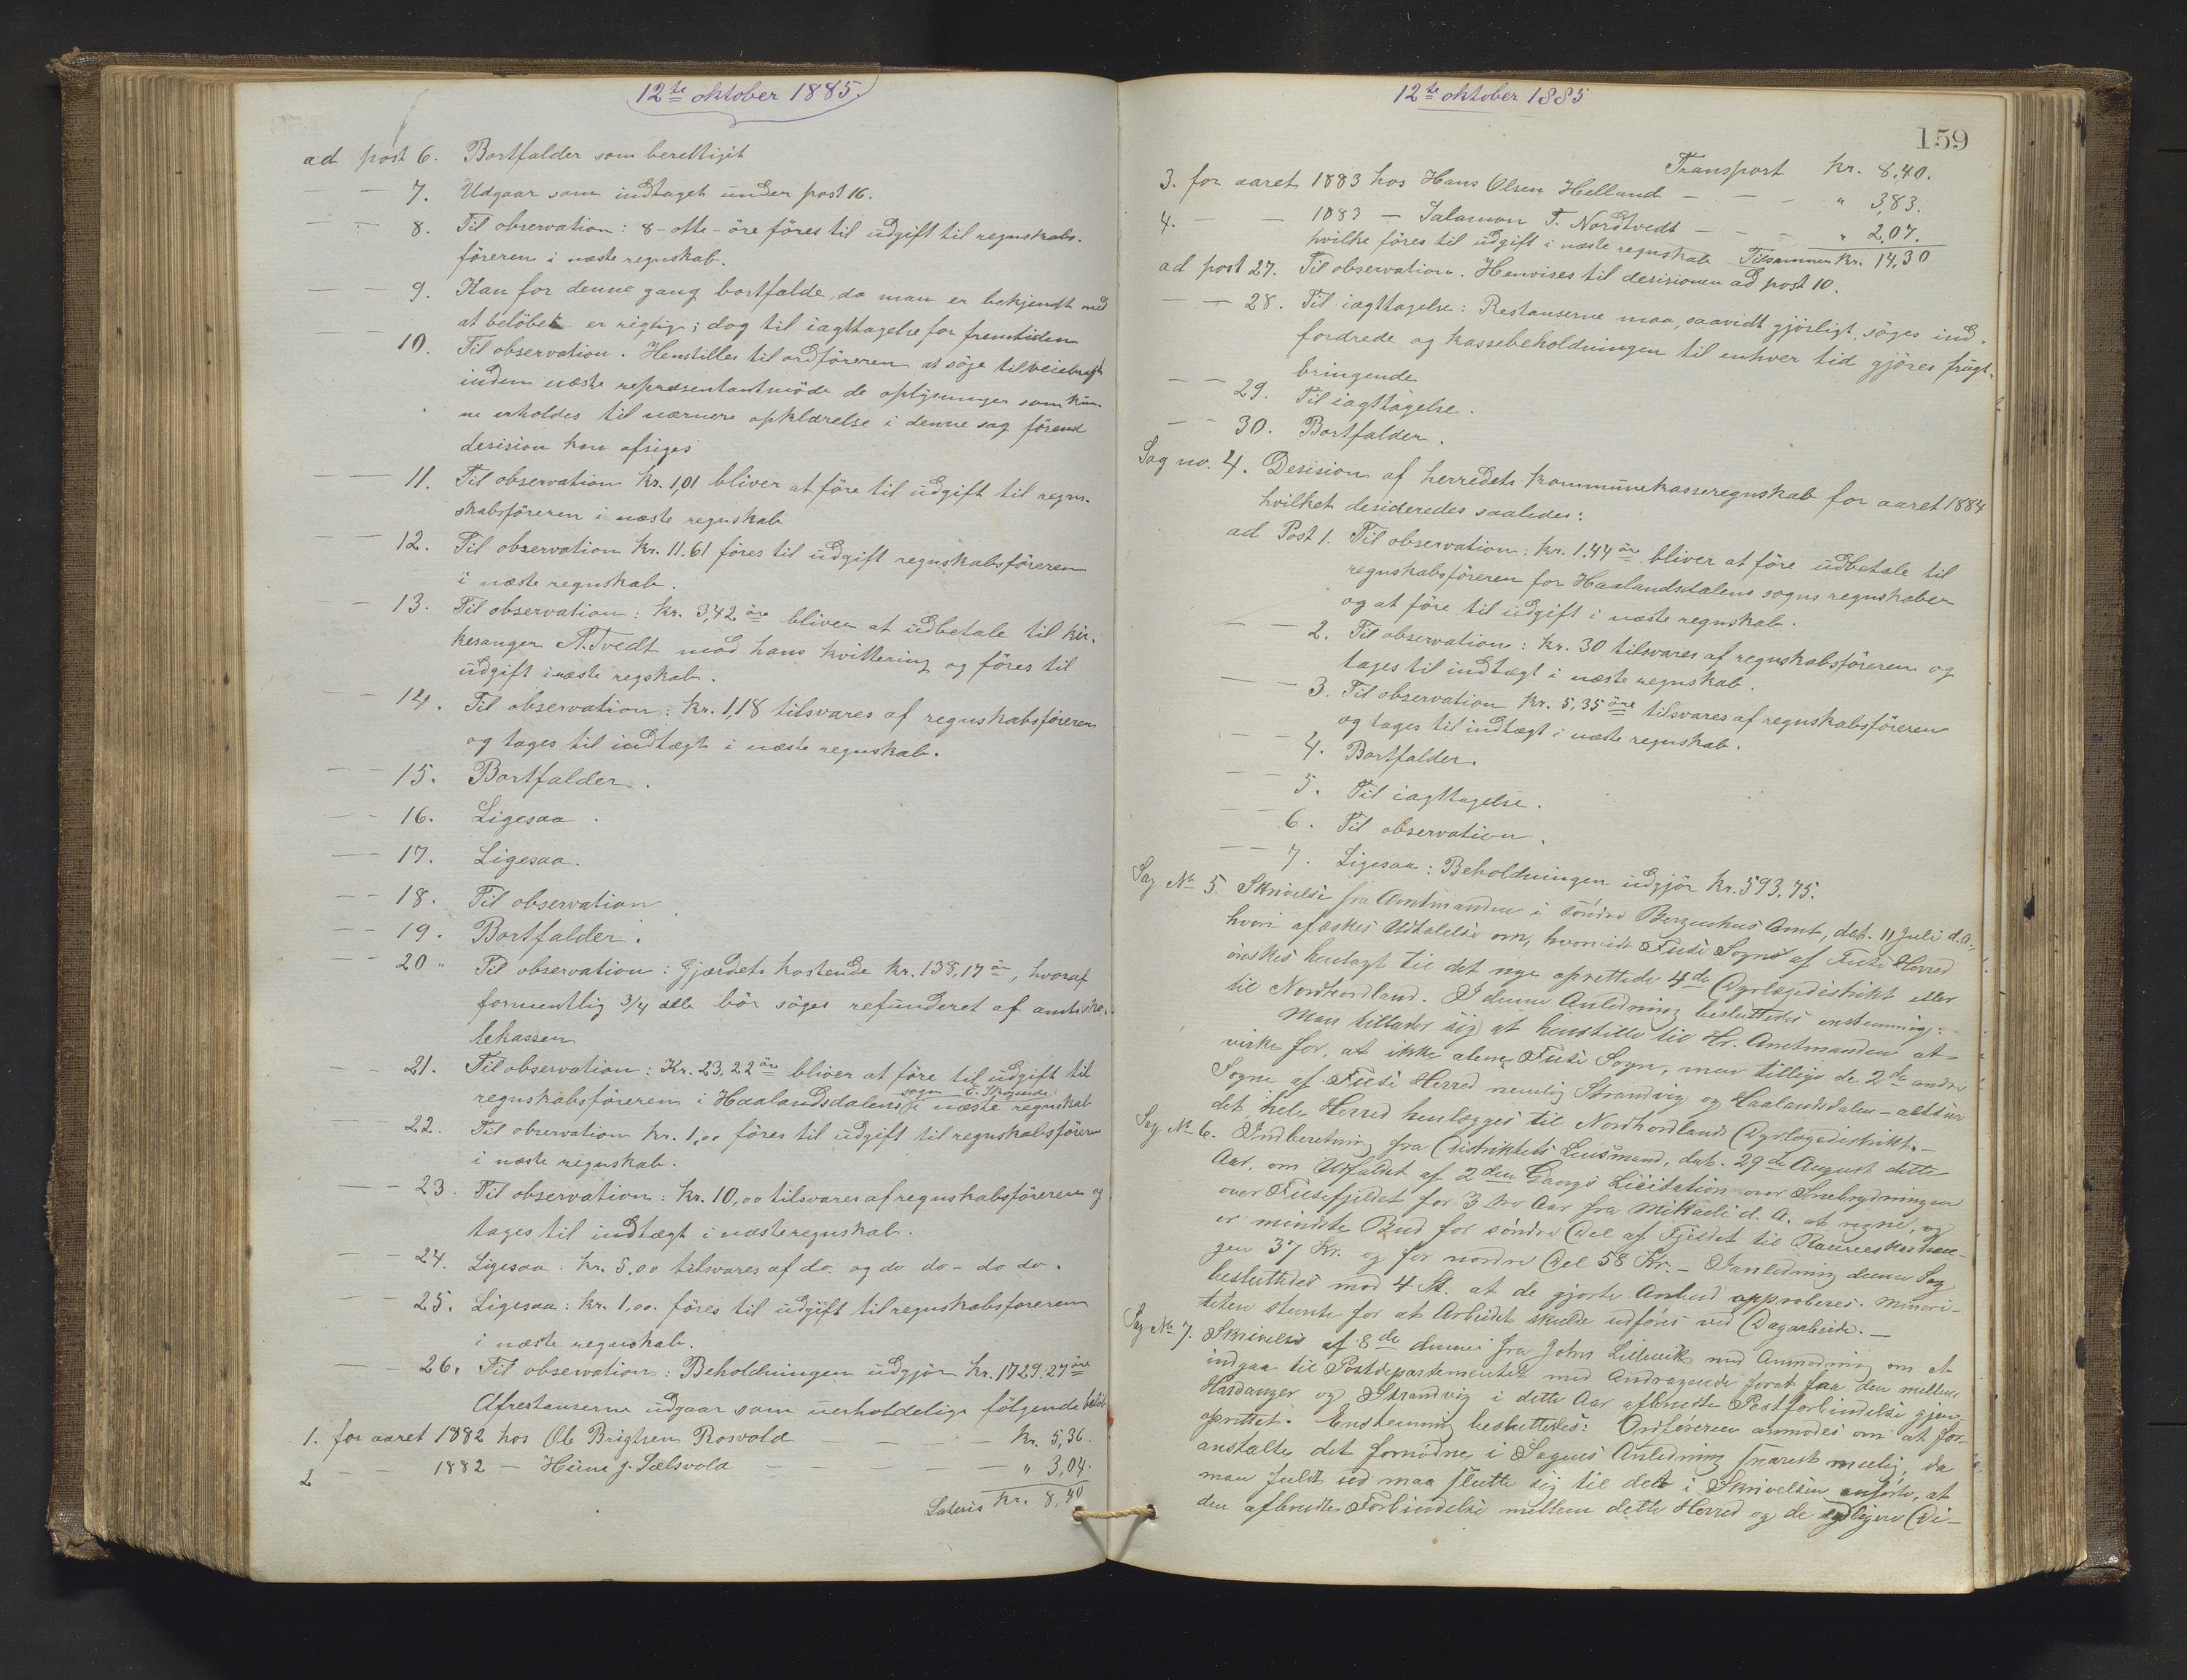 12te oktober 1885.
ad post 6. Bortfalder som berettiget
— — 7. Udgaar som indtaget under post 16.
— — 8. Til observation: 8 - otte - öre föres til udgift til regnskabs-
föreren i næste regnskab.
— — 9. Kan for denne gang bortfalde, da man er bekjendt med
at belöbet er rigtig; dog til iagttagelse for fremtiden
— — 10. Til observation. Henstilles til ordföreren at söge tilveiebragt
inden næste repræsentantmöde de oplysninger som kun-
ne erholdes til nærmere opklarelse i denne sag förend
desision kan afsiges
— — 11. Til observation kr. 1,01 bliver at före til udgift til regn-
skabsföreren i næste regnskab
— — 12. Til observation kr. 11.61 föres til udgift regnskabsföreren
i næste regnskab.
— — 13. Til observation: kr. 3,42 öre bliver at udbetale til kir-
kesanger A. Tvedt mod hans kvittering og föres til
udgift i næste regskab.
— — 14. Til observation: kr. 1,18 tilsvares af regnskabsföreren
og tages til indtægt i næste regnskab.
— — 15. Bortfalder.
— — 16. Ligesaa.
— — 17. Ligesaa.
— — 18. Til observation
— — 19. Bortfalder.
— — 20 " Til observation: Gjærdets kostende kr. 138,17 öre, hvoraf
formentlig 3/4 dele bör söges refunderet af amtssko-
lekassen
— — 21. Til observation: Kr. 23,22 öre bliver at före til udgift til
sogn E. Skogseide
regnskabsföreren i Haalandsdalens i næste regnskab
— — 22. Til observation kr. 1,00 föres til udgift til regnskabsföreren
i næste regnskab.
— — 23. Til observation: kr. 10,00 tilsvares af regnskabsföreren og
tages til indtægt i næste regnskab.
— — 24. Ligesaa: kr. 5,00 tilsvares af do. og do do - do do.
— — 25. Ligesaa: kr. 1,00. föres til udgift til regnskabsföreren
i næste regnskab.
— — 26. Til observation: Beholdningen udgjör kr. 1729.27 öre
Af restanserne udgaar som uerholdelige fölgende belöb
1. for aaret 1882 hos Ole Brigtsen Rosvold — — — kr. 5,36.
2 — — 1882 — Heine J. Sælsvold — — — " 3,04.
Lateris kr. 8,40
12te oktober 1885
159
Transport kr. 8,40.
3. for aaret 1883 hos Hans Olsen Helland — — — " 3,83.
4. — — 1883 — Salamon T. Nordtvedt — — — " 2,07.
hvilke föres til udgift i næste regnskab Tilsammen kr. 14,30
ad post 27. Til observation. Henvises til desisionen ad post 10.
— — 28. Til iagttagelse: Restanserne maa, saavidt gjörligt, söges ind-
fordrede og kassebeholdningen til enhver tid gjöres frugt-
bringende
— — 29. Til iagttagelse.
— — 30. Bortfalder.
Sag no. 4. Desision af herredets kommunekasseregnskab for aaret 1884
hvilket desideredes saaledes:
ad Post 1. Til observation: kr. 1.44 öre bliver at före udbetale til
regnskabsföreren for Haalandsdalens sogns regnskaber
og at före til udgift i næste regnskab.
— — 2. Til observation: kr. 30 tilsvares af regnskabsföreren og
tages til indtægt i næste regnskab.
— — 3. Til observation kr. 5,35 öre tilsvares af regnskabsföreren
og tages til indtægt i næste regnskab.
— — 4. Bortfalder.
— — 5. Til iagttagelse.
— — 6. Til observation.
— — 7. Ligesaa: Beholdningen udgjör kr. 593,75.
Sag No 5. Skrivelse fra Amtmanden i söndre Bergenhus Amt, dat. 11 Juli d. A.,
hvori afæskes Udtalelse om, hvorvidt Fuse Sogn af Fuse Herred
önskes henlagt til det nye oprettede 4de Dyrlægedistrikt eller
til Nordhordland. I denne Anledning besluttedes enstemmig:
Man tillader sig at henstille til Hr. Amtmanden at
virke for, at ikke alene Fuse Sogn, men tillige de 2de andre
Sogne af Fuse Herred nemlig Strandvig og Haalandsdalen - altsaa
det hele Herred henlægges til Nordhordlands Dyrlægedistrikt. —
Sag No 6. Indberetning fra Distriktets Lensmand, dat. 29de August dette
Aar, om Udfaldet af 2den Gangs Licitation over Snebrydningen
over Fusefjeldet for 3 tre Aar fra Mikaeli d. A. at regne, og
er mindste Bud for söndre Del af Fjeldet til
gen 37 Kr. og for nordre Del 58 Kr. — I anledning denne Sag
besluttedes mod 4 St. at de gjorte Anbud approberes. Minori-
teten stemte for at Arbeidet skulde udföres ved Dagarbeide. —
Sag No 7. Skrivelse af 8de dennes fra John Lillevik med Anmodning om at
indgaa til Postdepartementet med Andragende forat faa den mellem
Hardanger og Strandvig i dette Aar afbrudte Postforbindelse gjen-
oprettet. Enstemmig besluttedes: Ordföreren anmodes om at for-
anstalte det fornödne i Sagens Anledning snarest mulig, da
man fuldt ud maa slutte sig til det i Skrivelsen anförte, at
den afbrudte Forbindelse mellem dette Herred og de sydligere Di-